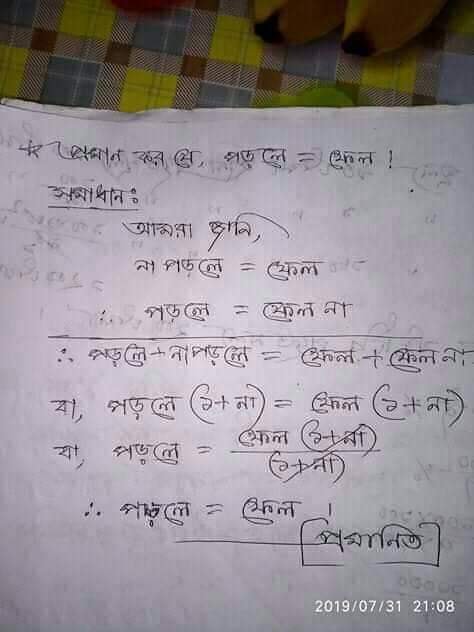 * প্রমান কর যে, পড়লে = ফেল !
সমাধান :
আমরা জানি,
না পড়লে = ফেল
∴ পড়লে = ফেল না
∴ পড়লে + না পড়লে = ফেল + ফেল না
বা, পড়লে (১ + না) = ফেল (১ + না)
বা, পড়লে = ফেল (১ + না) / (১ + না)
∴ পড়লে = ফেল !
প্রমানিত
2019/07/31 21:08